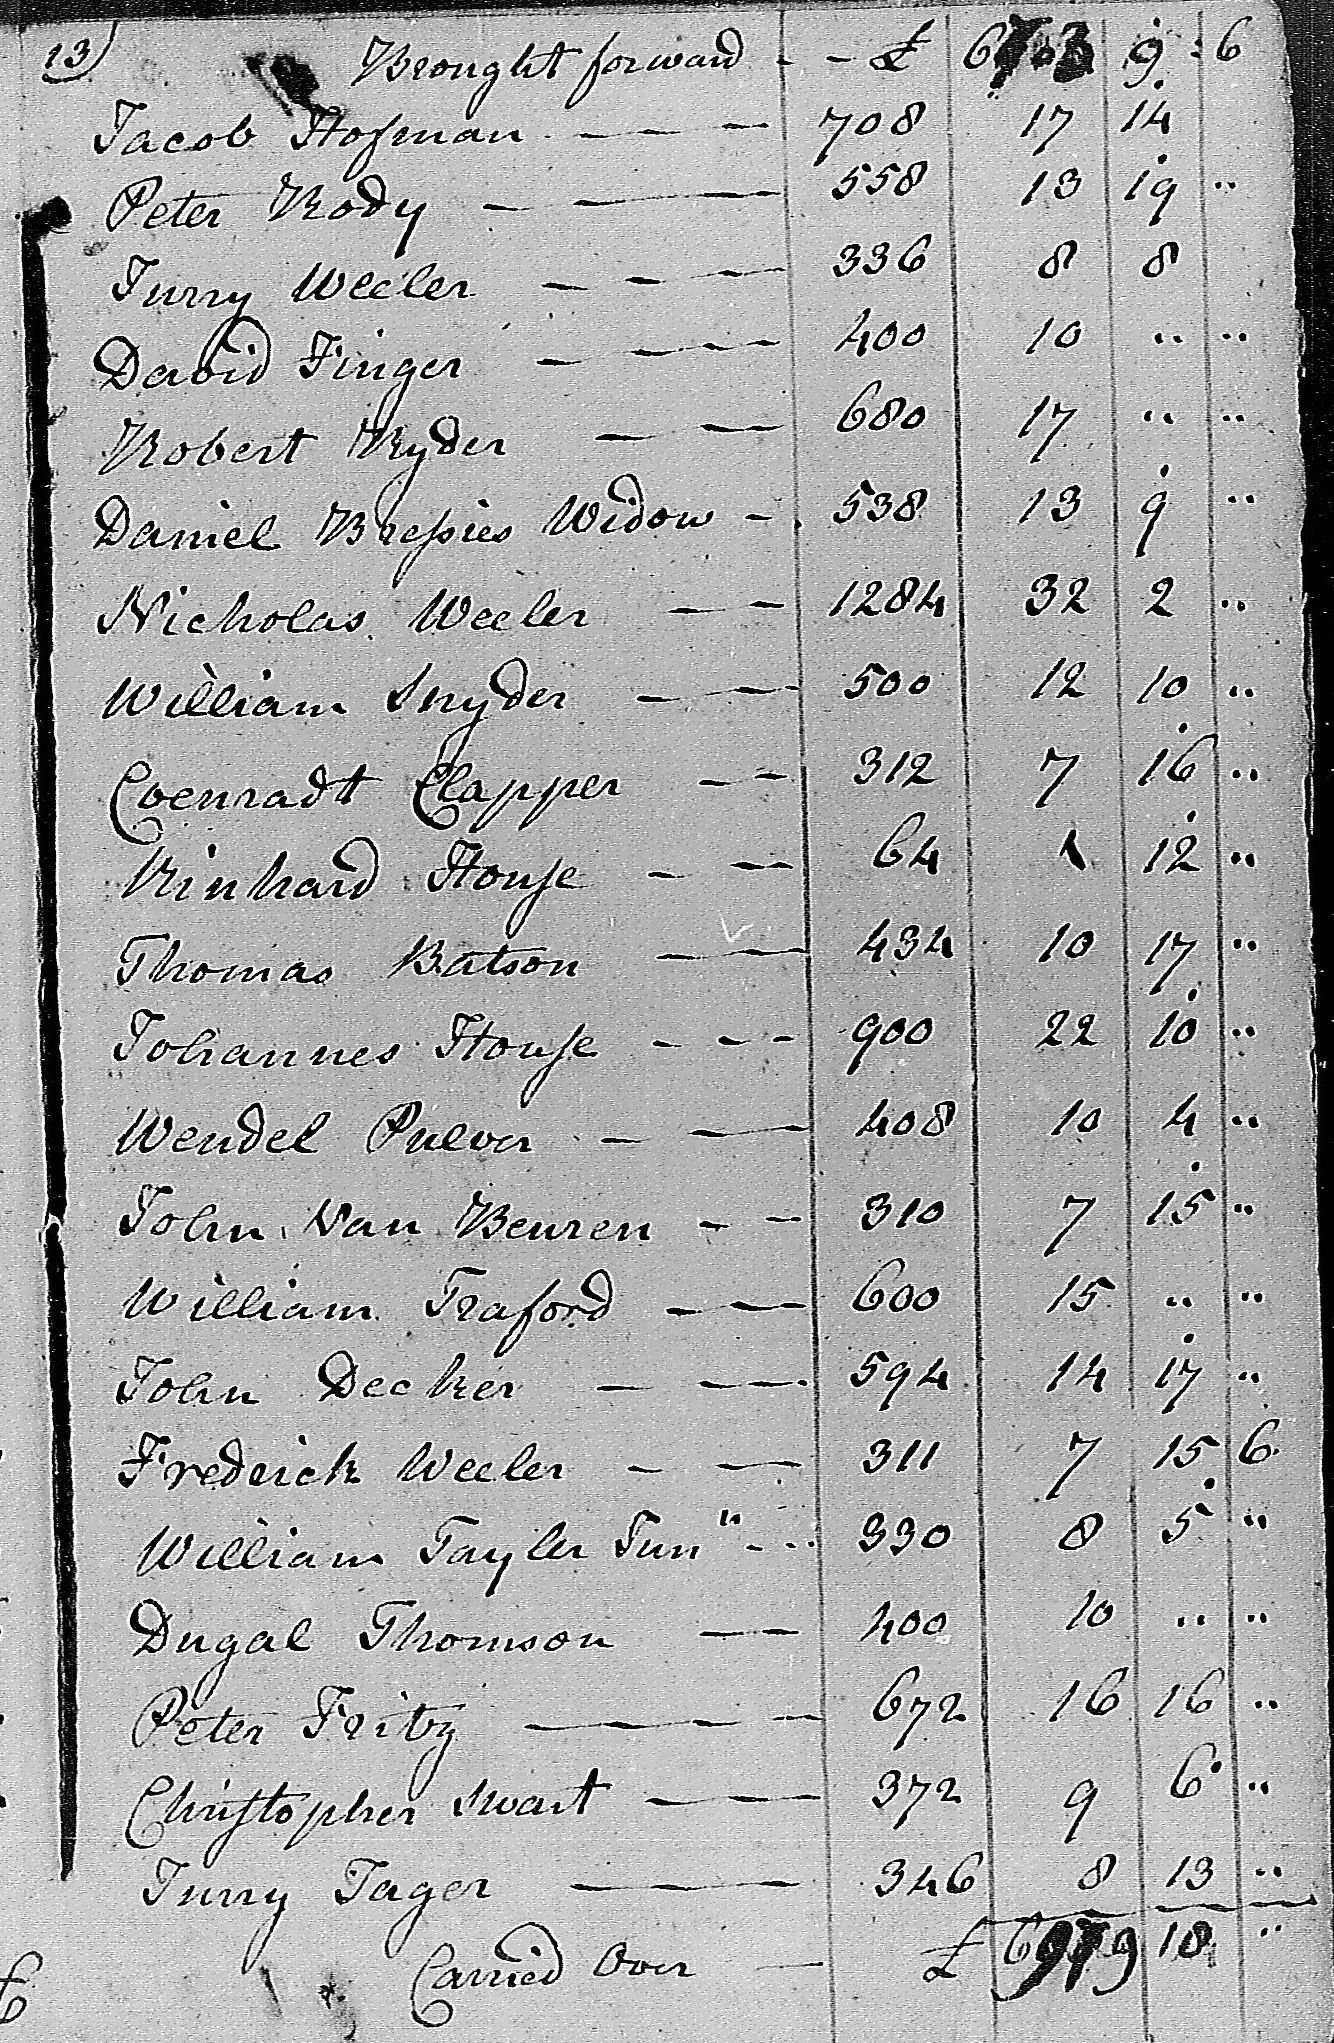 13) Brought forward - - £ 9 : 6
Jacob Hofman - - - 708 17 14
Peter Rody - - - 558 13 19 "
Jurry Weeler - - - 336 8 8
David Finger - - - 400 10 " "
Robert Ryder - - 680 17 " "
Daniel Bressies Widow - 538 13 9 "
Nicholas Weeler - - 1284 32 2 "
William Snyder - - 500 12 10 "
Coenradt Clapper - - 312 7 16 "
Rinhard House - - 64 1 12 "
Thomas Batson - - 434 10 17 "
Johannes House - - - 900 22 10 "
Wendel Pulver - - 408 10 4 "
John Van Beuren - - 310 7 15 "
William Traford - - 600 15 " "
John Decker - - 594 14 17 "
Frederick Weeler - - 311 7 15 6
William Tayler Jun" - - 330 8 5 "
Dugal Thomson - - 400 10 " "
Peter Fritz - - - - 672 16 16 "
Christopher Swart - - - 372 9 6 "
Jurry Jager - - - 346 8 13 "
Carried Over - £ 18 "